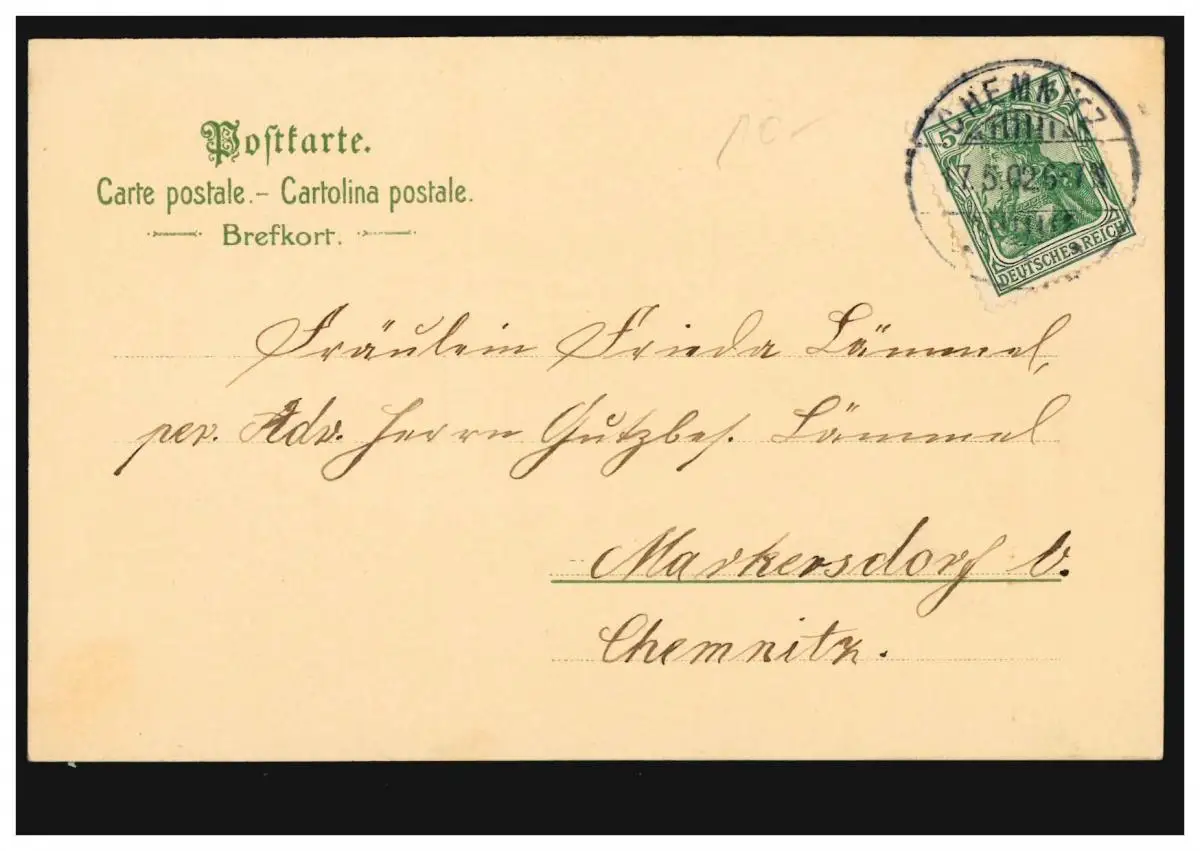 Postkarte.
Carte postale. – Cartolina postale.
Brefkort.
10-
CHEMNITZ
5 5
7.5.02. 6-7N
DEUTSCHES REICH
Fräulein Frieda Lämmel,
per. Adr. Herrn Gutzbes. Lämmel
Markersdorf b.
Chemnitz.